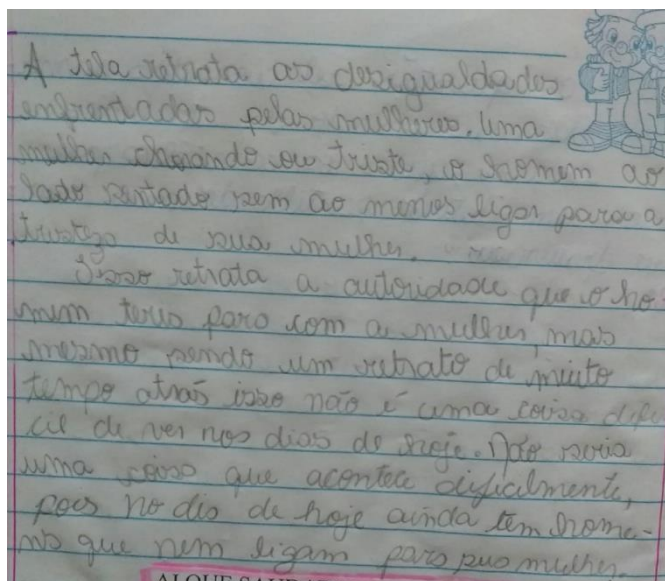 A tela retrata as desigualdades
enfrentadas pelas mulheres. Uma
mulher chorando ou triste, o homem ao
lado sentado sem ao menos ligar para a
tristeza de sua mulher.
Isso retrata a autoridade que o ho
mem teus para com a mulher, mas
mesmo sendo um retrato de muito
tempo atrás isso não é uma coisa difi
cil de ver nos dias de hoje. Não seria
uma coisa que acontece dificalmente,
pois no dia de hoje ainda tem home-
ns que nem ligam para sua mulher.